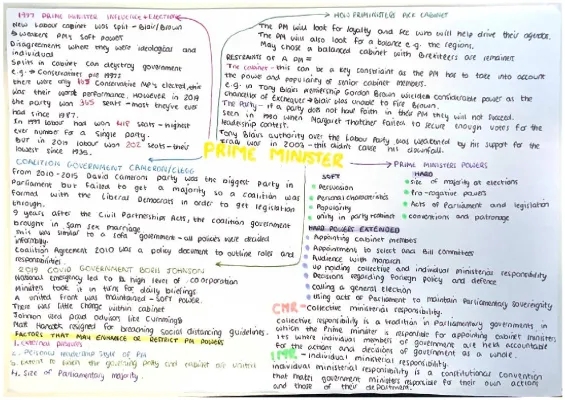 1997 PRIME MINISTER INFLUENCE + ELECTION
New Labour cabinet was split - Blair/Brown
→ weakens PM's soft power
Disagreements where they were ideological and
individual
Splits in cabinet can destroy government
e.g. → Conservatives pre 1997
There were only 165 Conservative MPs elected, this
was their worst performance. However, in 2019
the party won 365 seats - most they've ever
had since 1987.
In 1997 labour had 418 seats - highest
ever number for a single party.
but in 2019 labour won 202 seats - their
lowest since 1935.
HOW PRIMINISTERS PICK CABINET
The PM will look for loyalty and see who will help drive their agenda.
The PM will also look for a balance e.g. the regions.
May chose a balanced cabinet with Brexiteers and remainers
RESTRAINTS OF A PM
The cabinet - this can be a key constraint as the PM has to take into account
the power and popularity of senior cabinet members.
e.g. in Tony Blair's membership Gordon Brown wielded considerable power as the
Chancellor of Exchequer → Blair was unable to fire Brown.
The Party - if a party does not have faith in their PM they will not succeed.
Seen in 1990 when Margaret Thatcher failed to secure enough votes for the
leadership contest.
Tony Blair's authority over the Labour Party was weakened by his support for the
Iraq war in 2003 - this didn't cause his downfall.
PRIME MINISTER
COALITION GOVERNMENT CAMERON/CLEGG
From 2010-2015 David Camerons party was the biggest party in
Parliament but failed to get a majority so a coalition was
formed with the Liberal Democrats in order to get legislation
through.
9 years after the Civil Partnerships Acts, the coalition government
brought in same sex marriage
This was similar to a sofa government - all policies were decided
informally.
Coalition Agreement 2010 was a policy document to outline roles and
responsibilities.
2019 COVID GOVERNMENT BORIS JOHNSON
National Emergency led to a high level of cooperation
Ministers took it in turn for daily briefings
A united front was maintained - soft power.
There was little change within cabinet
Johnson used paid advisors like Cummings
Matt Hancock resigned for breaching social distancing guidelines.
FACTORS THAT MAY ENHANCE OR RESTRICT PM POWERS
1. External pressures
2. Personal leadership style of PM
3. Extent to which the governing party and cabinet are united
4. Size of Parliamentary majority.
PRIME MINISTERS POWERS
SOFT
Persuasion
Personal characteristics
Popularity
Unity in party + cabinet
HARD
Size of majority at elections
Pre-rogative powers
Acts of Parliament and legislation
Conventions and patronage
HARD POWERS EXTENDED
Appointing cabinet members
Appointments to select and Bill committees
Audience with monarch
Upholding collective and individual ministerial responsibility
Decisions regarding foreign policy and defence
Calling a general election
Using acts of Parliament to maintain Parliamentary sovereignty
CMR - Collective ministerial responsibility.
Collective responsibility is a tradition in Parliamentary governments, in
which the Prime Minister is responsible for appointing cabinet ministers
It's where individual members of government are held accountable
for the actions and decisions of government as a whole.
IMR - individual ministerial responsibility.
individual ministerial responsibility is a constitutional convention
that makes government ministers responsible for their own actions
and those of their department.